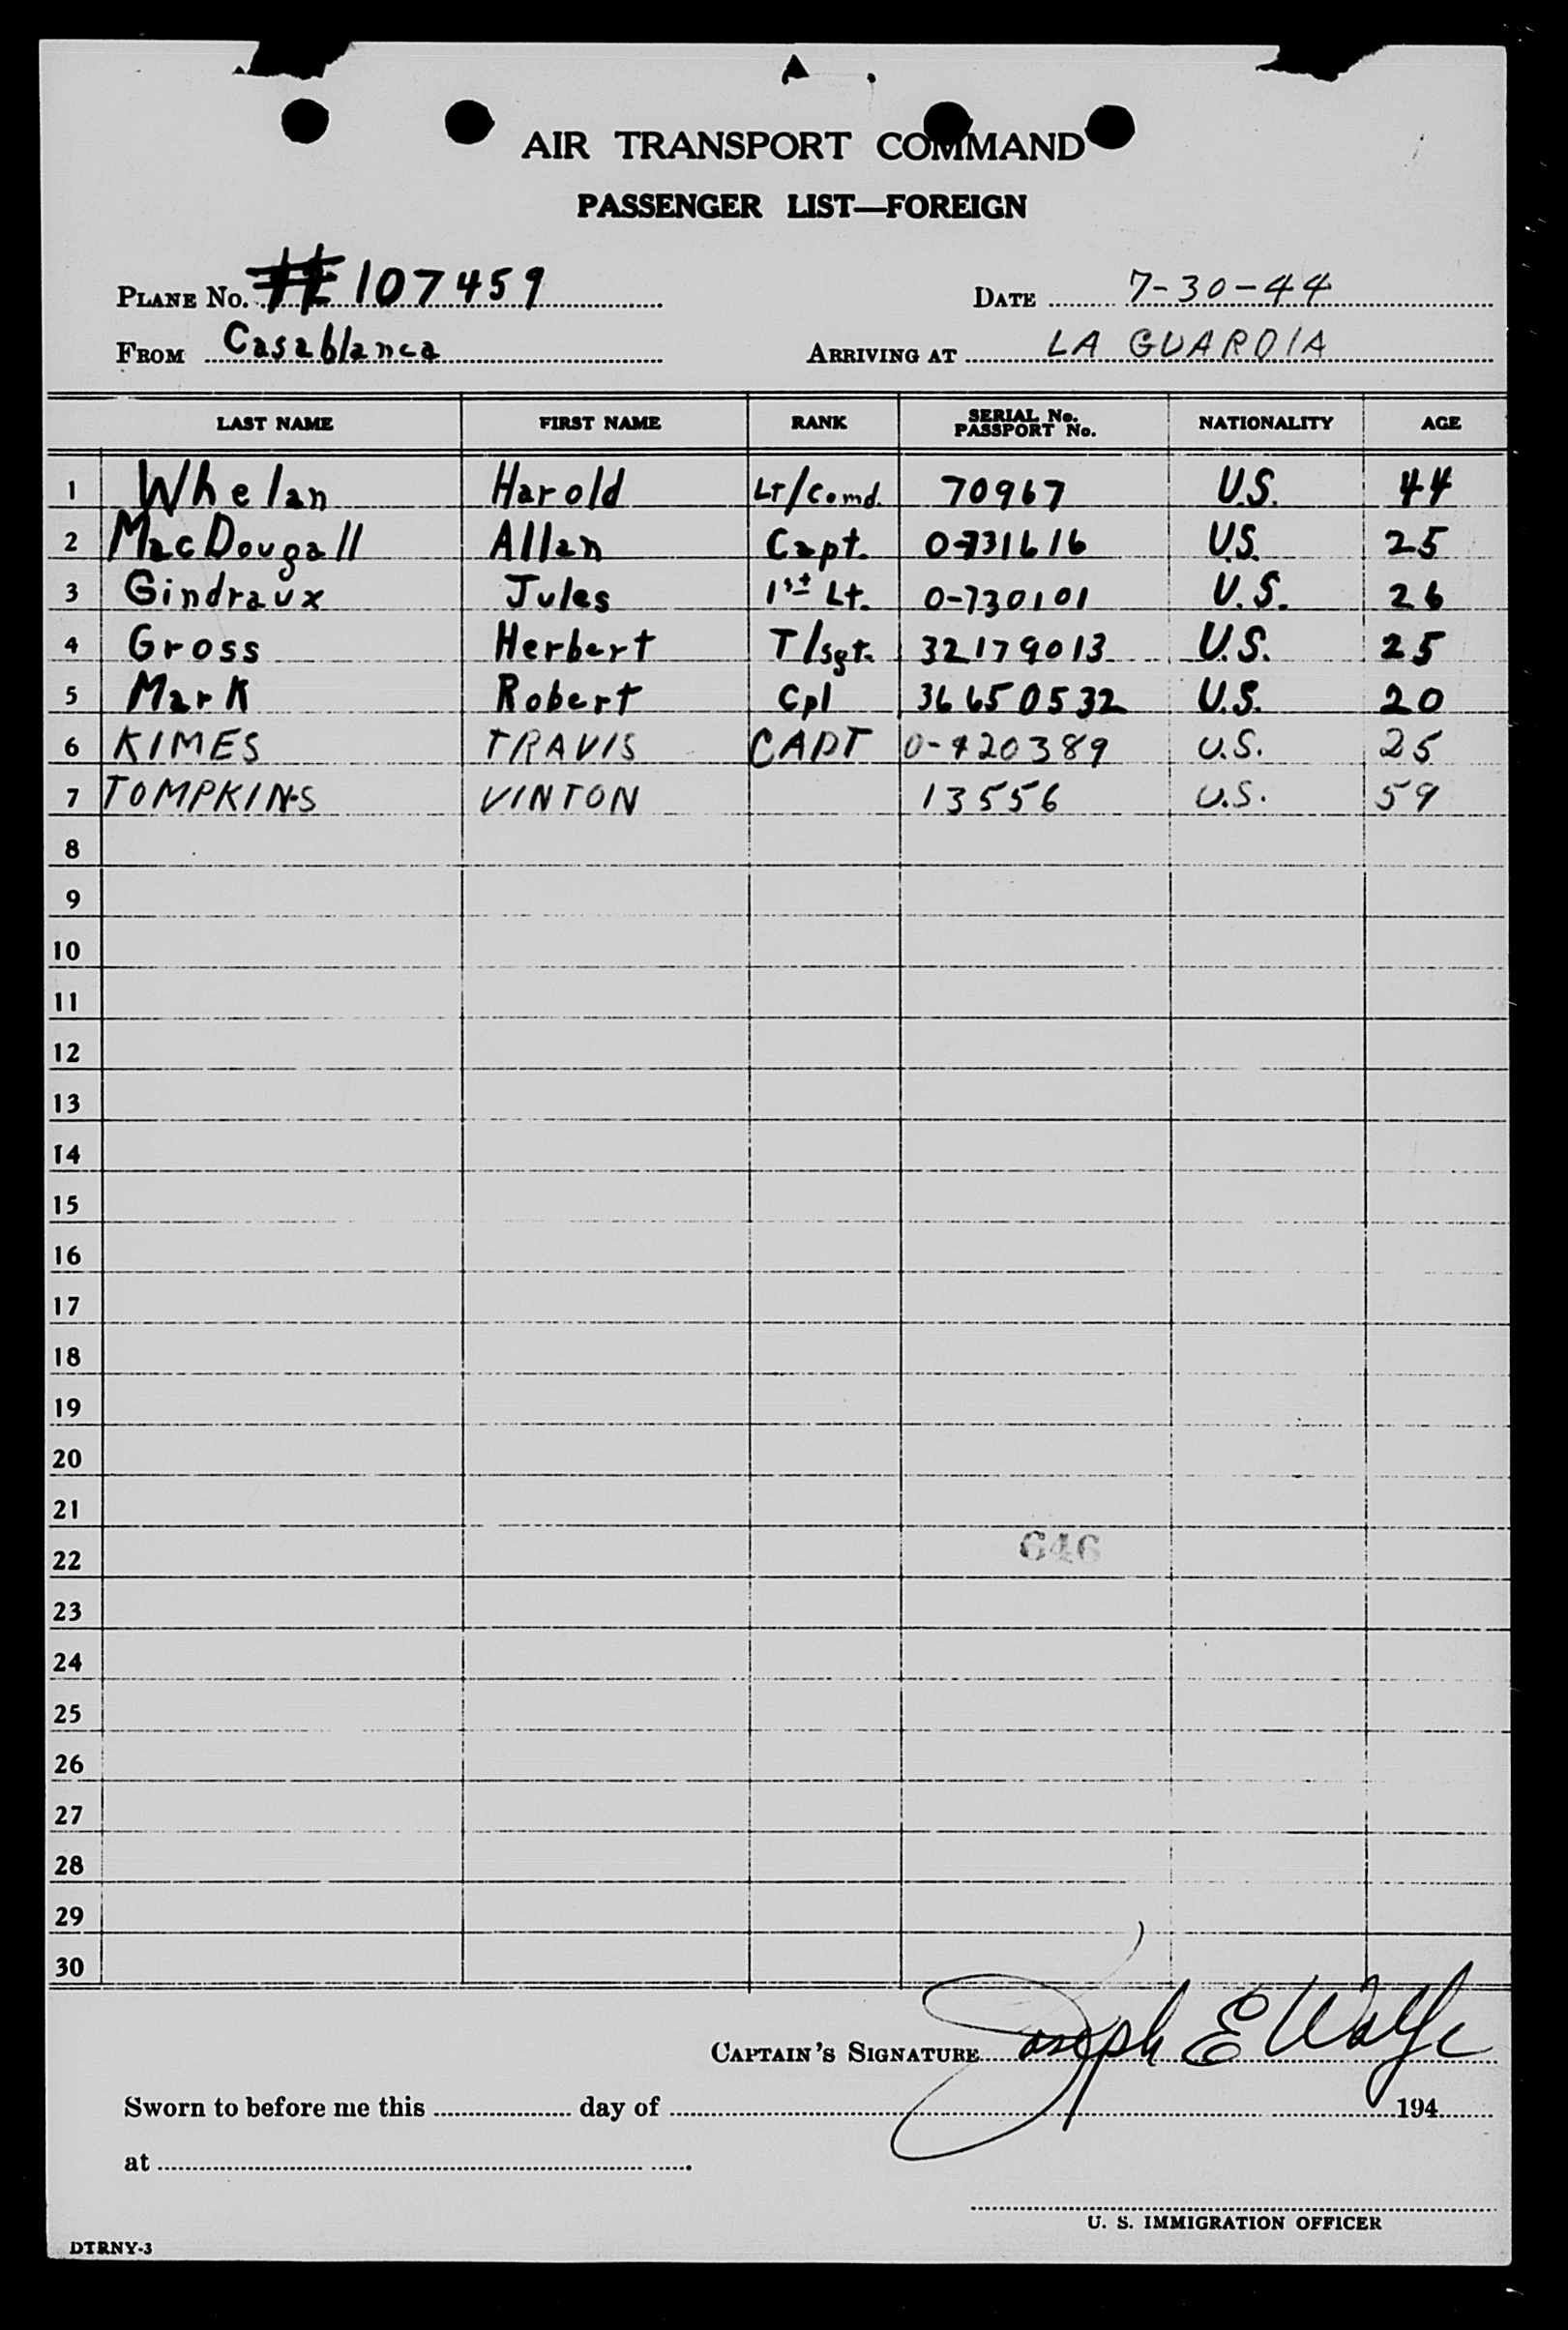 AIR TRANSPORT COMMAND
PASSENGER LIST—FOREIGN
PLANE No. # 107459 DATE 7-30-44
FROM Casablanca ARRIVING AT LA GUARDIA
LAST NAME FIRST NAME RANK SERIAL No. PASSPORT No. NATIONALITY AGE
1 Whelan Harold Lt/Comd. 70967 U.S. 44
2 MacDougall Allan Capt. 0-731616 U.S. 25
3 Gindraux Jules 1st Lt. 0-730101 U.S. 26
4 Gross Herbert T/sgt. 32179013 U.S. 25
5 Mark Robert Cpl 36650532 U.S. 20
6 KIMES TRAVIS CAPT 0-420389 U.S. 25
7 TOMPKINS VINTON 13556 U.S. 59
8
9
10
11
12
13
14
15
16
17
18
19
20
21
22 646
23
24
25
26
27
28
29
30
CAPTAIN'S SIGNATURE Joseph E Wolfe
Sworn to before me this day of 194
at
U. S. IMMIGRATION OFFICER
DTRNY-3